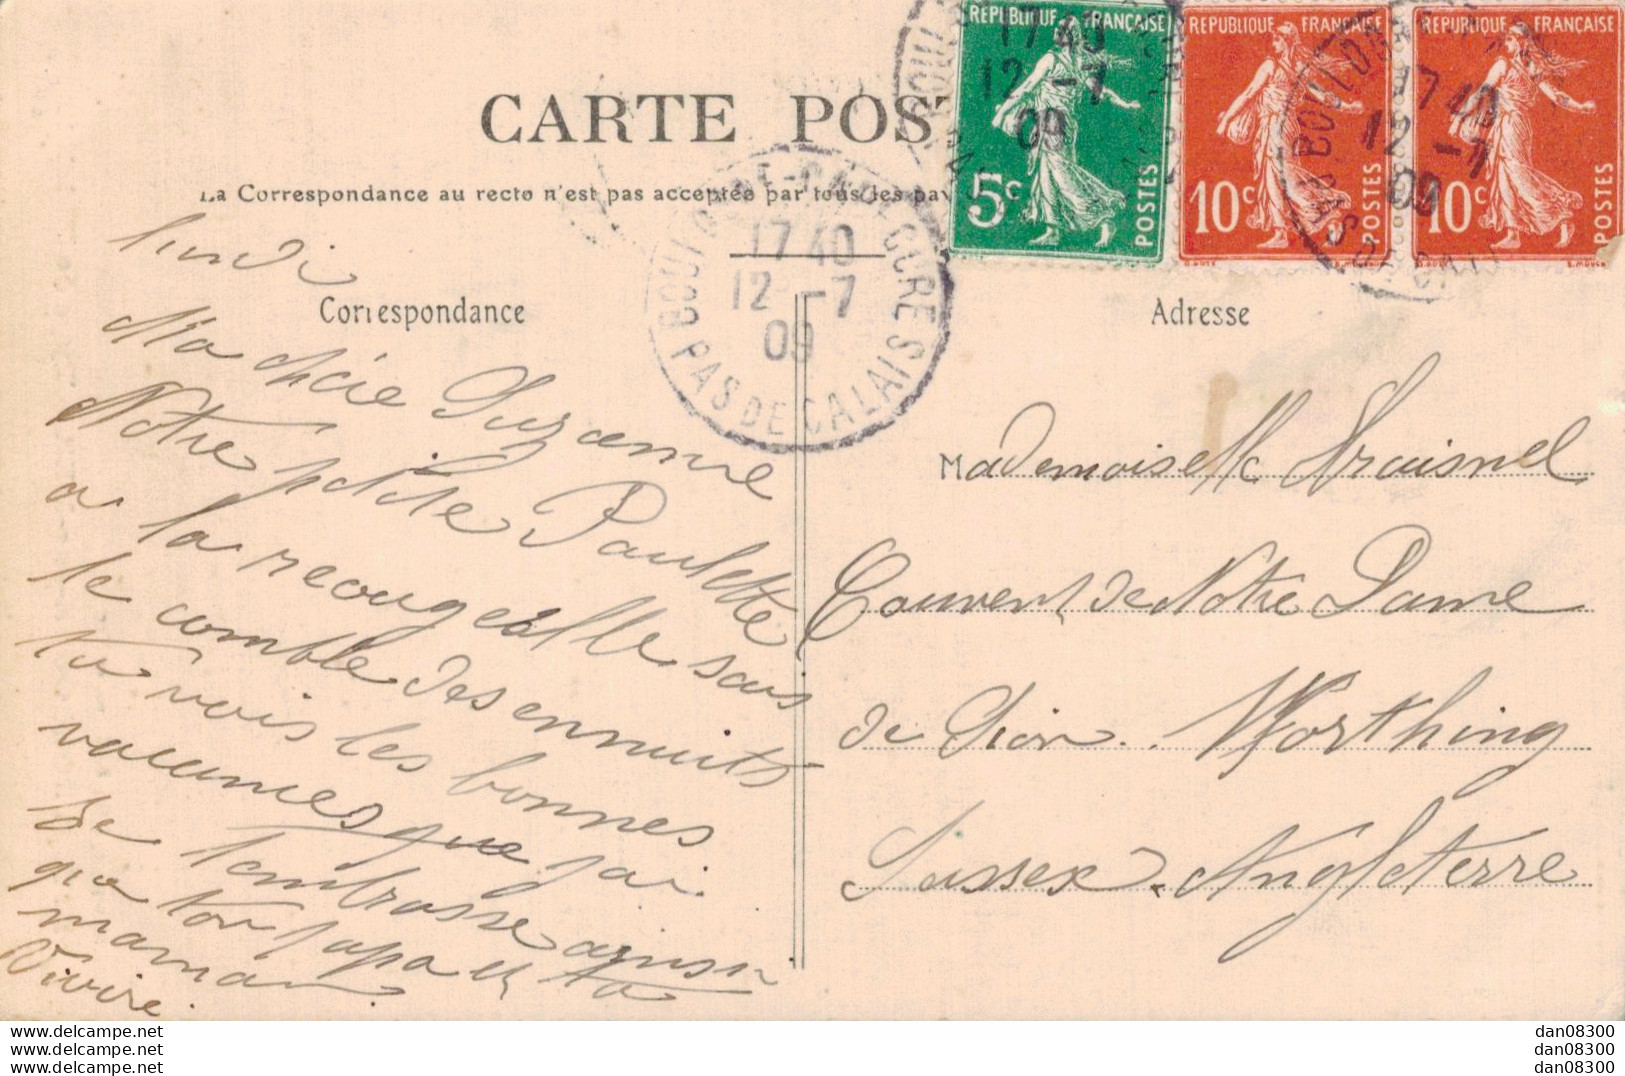 CARTE POST
La Correspondance au recto n'est pas acceptée par tous les pay
RÉPUBLIQUE FRANÇAISE
5c
POSTES
RÉPUBLIQUE FRANÇAISE
10c
POSTES
RÉPUBLIQUE FRANÇAISE
10c
POSTES
17 40
12 -7
09
17 40
12 -7
09
17 40
12 -7
09
PAS DE CALAIS
Correspondance
Adresse
lundi
Ma chérie Suzanne
Notre petite Paulette
a la rougeolle sans
le comble des ennuits
tu vois les bonnes
vacances que j'ai
Je t'embrasse ainsi
que ton papa et ta
maman
Mademoiselle
Couvent de Notre Dame
de Sion. Worthing
Sussex. Angleterre
dan08300
dan08300
dan08300
www.delcampe.net
www.delcampe.net
www.delcampe.net